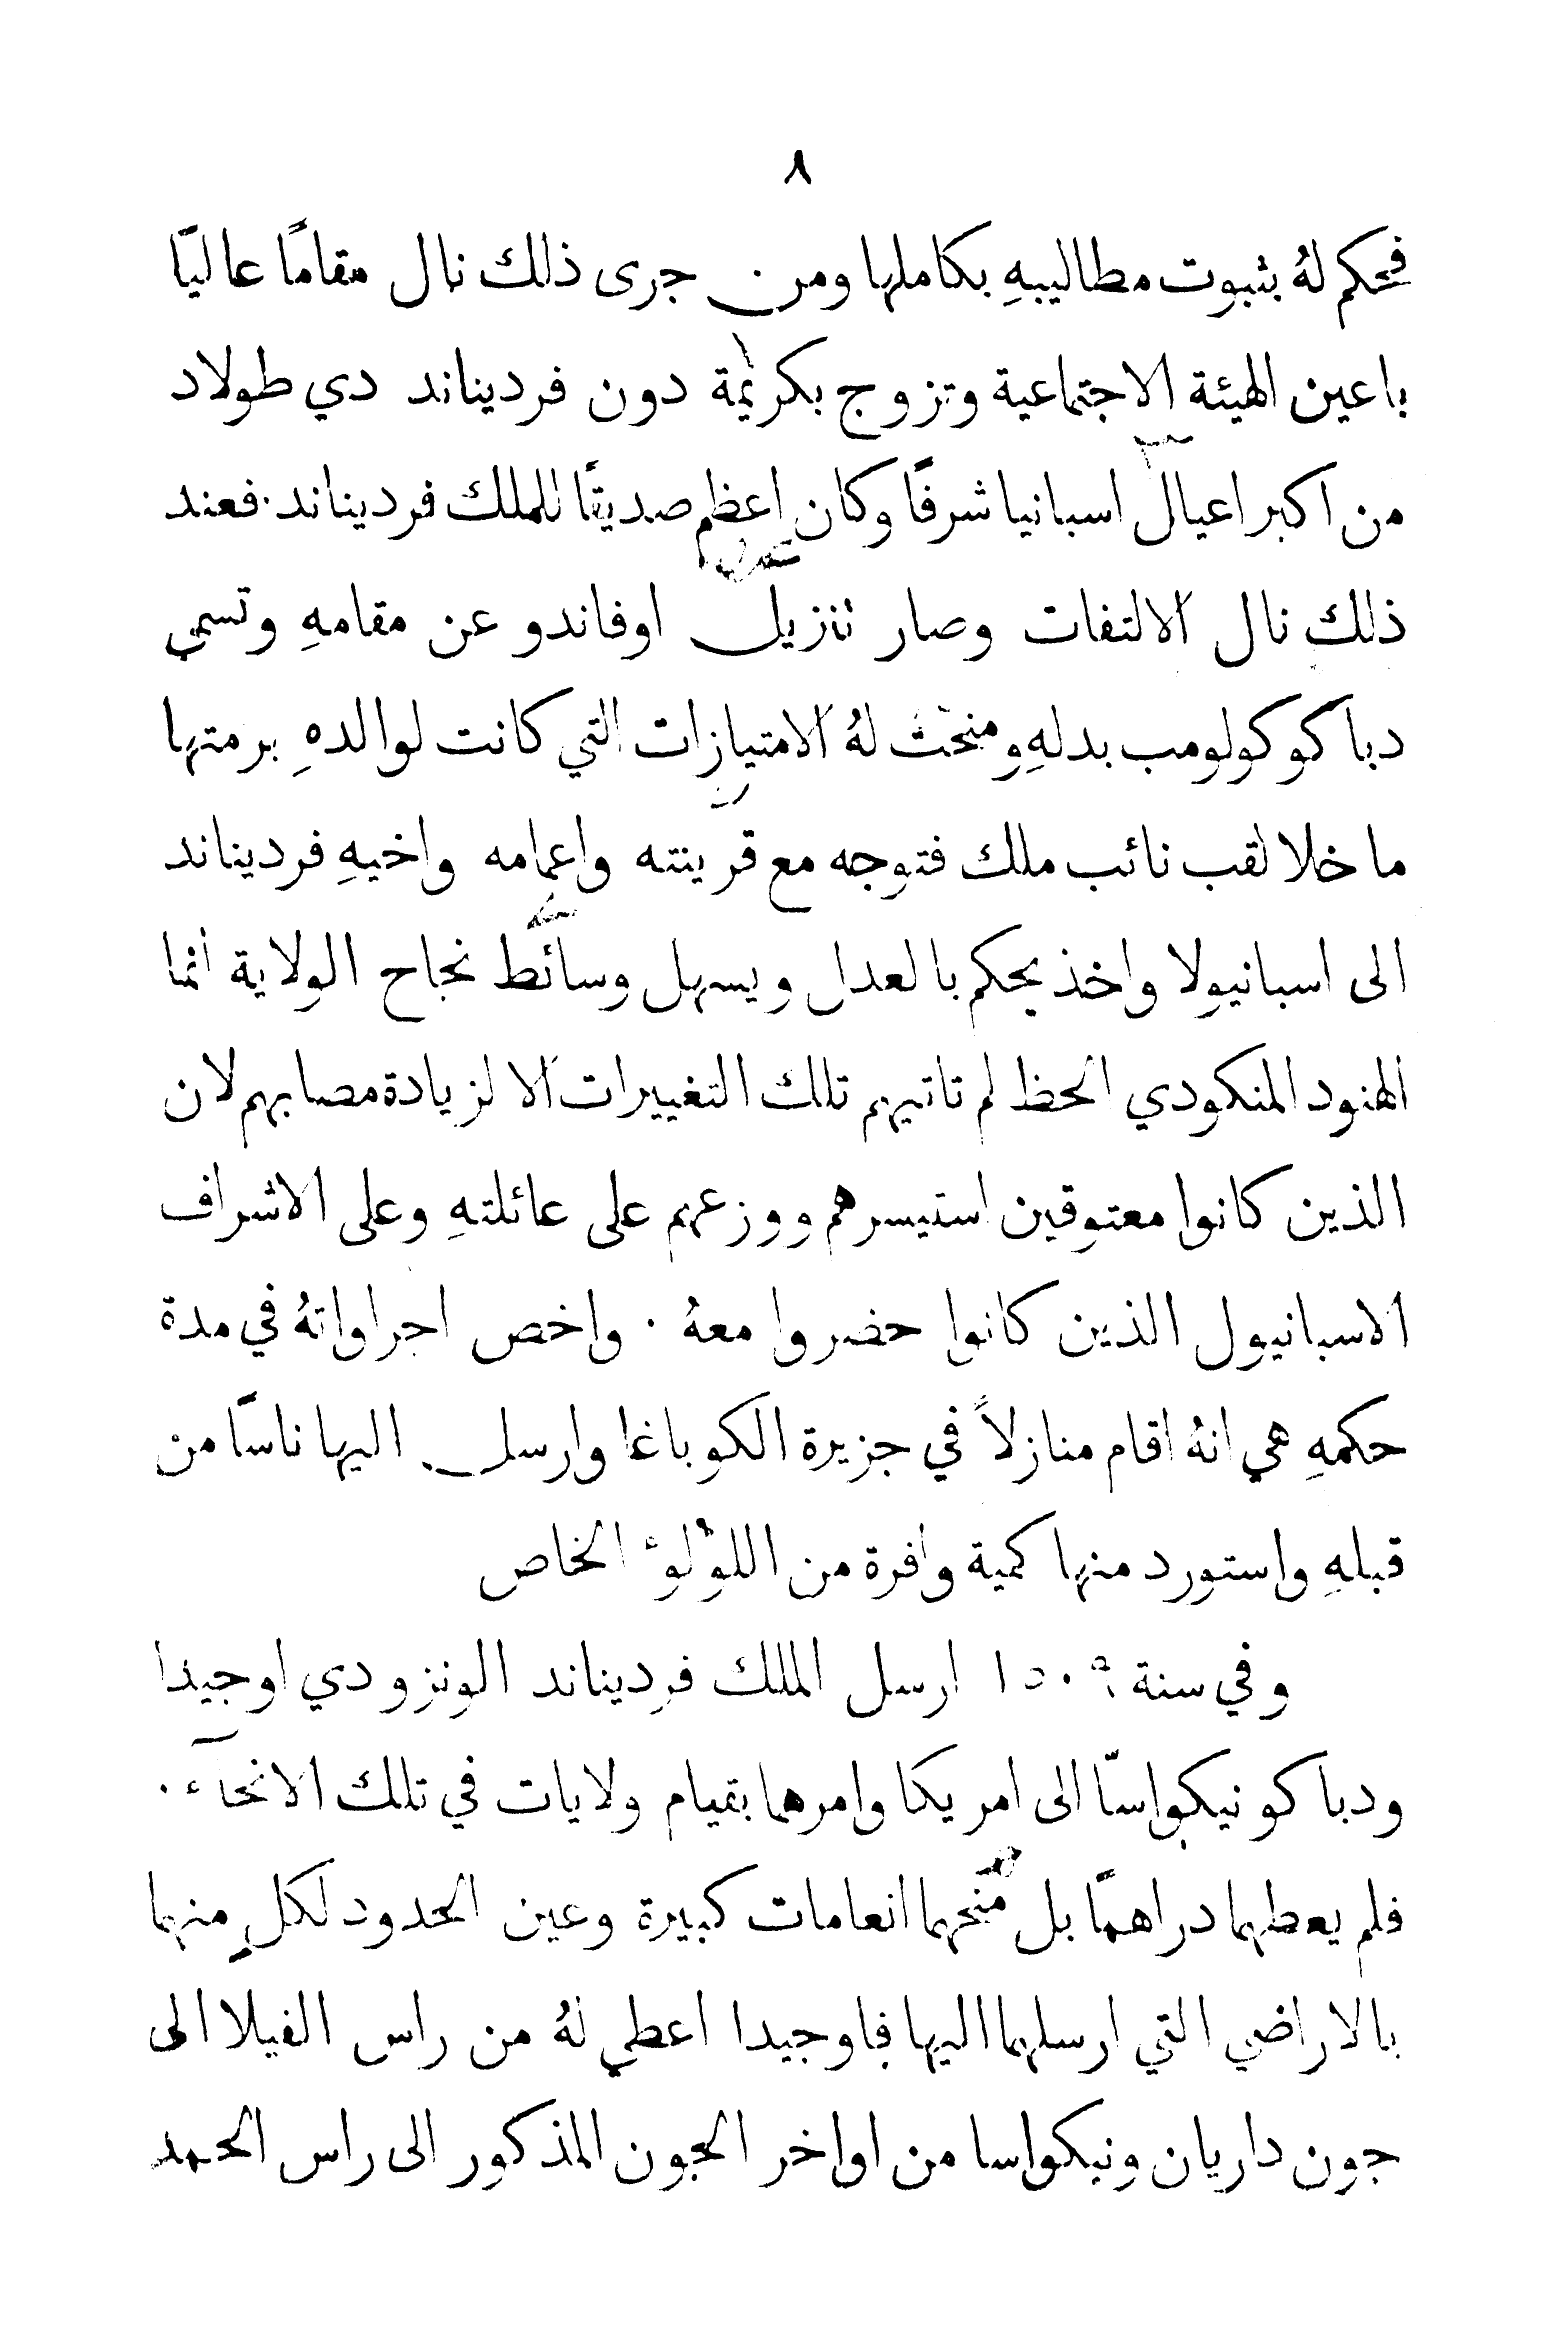 ٨
فحكم لهُ بثبوت مطاليبهِ بكاملها ومن جرى ذلك نال مقامًا عاليًا
باعين الهيئة الاجتماعية وتزوج بكريمة دون فرديناند دي طولاد
من اكبر اعيال اسبانيا شرفًا وكان اعظم صديقًا للملك فرديناند. فعند
ذلك نال الالتفات وصار تنزيل اوفاندو عن مقامهِ وتسمى
دياكو كولومب بدلهِ ومنحت لهُ الامتيازات التي كانت لوالدهِ برمتها
ما خلا لقب نائب ملك فتوجه مع قرينته واعمامه واخيهِ فرديناند
الى اسبانيولا واخذ يحكم بالعدل ويسهل وسائط نجاح الولاية انما
الهنود المنكودي الحظ لم تاتيهم تلك التغييرات الا لزيادة مصابهم لان
الذين كانوا معتوقين استيسرهم ووزعهم على عائلتهِ وعلى الاشراف
الاسبانيول الذين كانوا حضروا معهُ . واخص اجراواتهُ في مدة
حكمهِ هي انهُ اقام منازلاً في جزيرة الكوباغا وارسل اليها ناسًا من
قبلهِ واستورد منها كمية وافرة من اللؤلوء الخاص
وفي سنة ١٥٠٩ ارسل الملك فرديناند الونزو دي اوجيدا
ودياكو نيكواسّا الى امريكا وامرهما بقيام ولايات في تلك الانحآء .
فلم يعطهما دراهمًا بل منحهما انعامات كبيرة وعين الحدود لكلٍ منهما
بالاراضي التي ارسلهما اليها فاوجيدا اعطي لهُ من راس الفيلا الى
جون داريان ونيكواسا من اواخر الجون المذكور الى راس الحمد